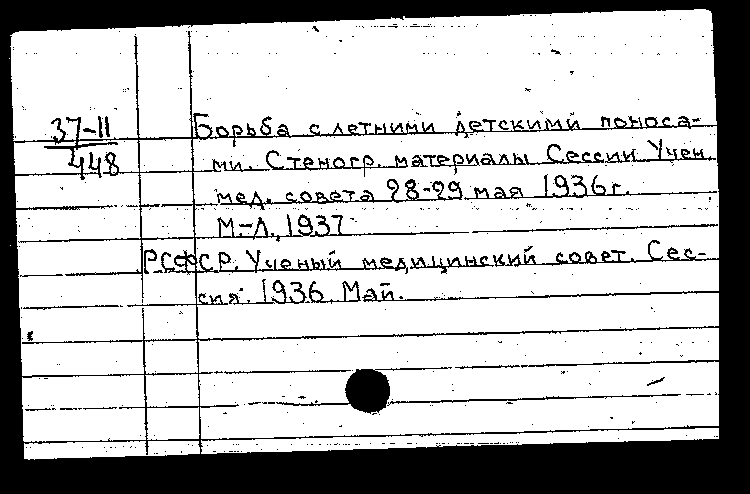 37-11
448
Борьба с летними детскими поноса-
ми. Стеногр. материалы Сессии Учен.
мед. совета 28-29 мая 1936г.
М.-Л., 1937
РСФСР. Ученый медицинский совет. Сес-
сия. 1936. Май.